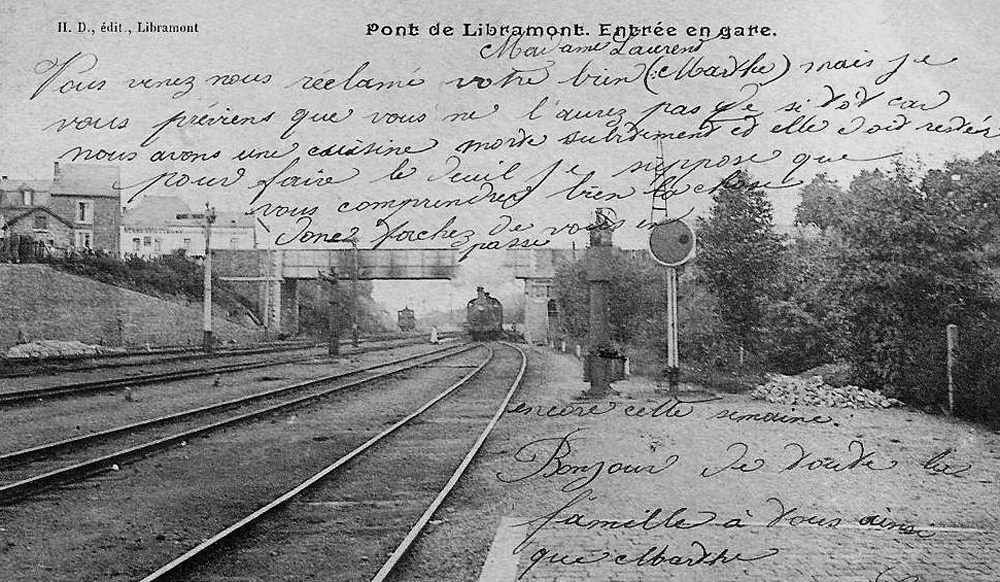 H. D., édit., Libramont
Pont de Libramont. Entrée en gare.
Madame Laurent
Vous venez nous reclamé votre bien (Marthe) mais je
vous préviens que vous ne l'aurez pas si tôt car
nous avons une cuisine morte subitement et elle doit rester
pour faire le deuil je suppose que
vous comprendrez bien la chose
donez tachez de vous en
passé
encore cette semaine.
Bonjour de toute la
famille à vous ainsi
que Marthe